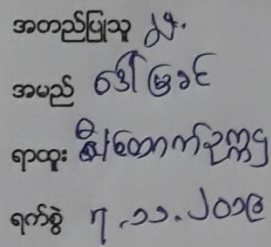 အတည်ပြုသူ
အမည် ဒေါ်မြခင်
ရာထူး ဒု/ထောက်ဥက္ကဌ
ရက်စွဲ ၇.၁၁.၂၀၁၉